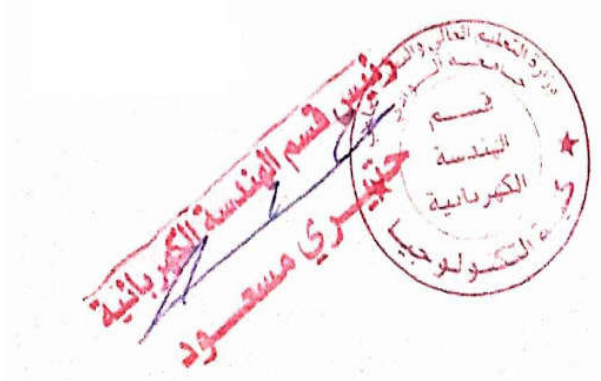 رئيس قسم الهندسة الكهربائية
حتيري مسعود
وزارة التعليم العالي والبحث
جامعة الوادي
قسم
الهندسة
الكهربائية
كلية التكنولوجيا